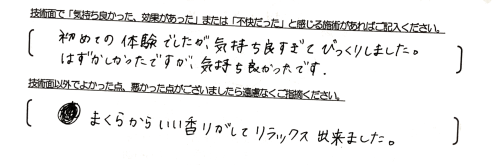 技術面で「気持ち良かった、効果があった」または「不快だった」と感じる施術があればご記入ください。
初めての体験でしたが、気持ち良すぎてびっくりしました。
はずかしかったですが、気持ち良かったです.
技術面以外でよかった点、悪かった点がございましたら遠慮なくご指摘ください。
まくらからいい香りがしてリラックス出来ました。